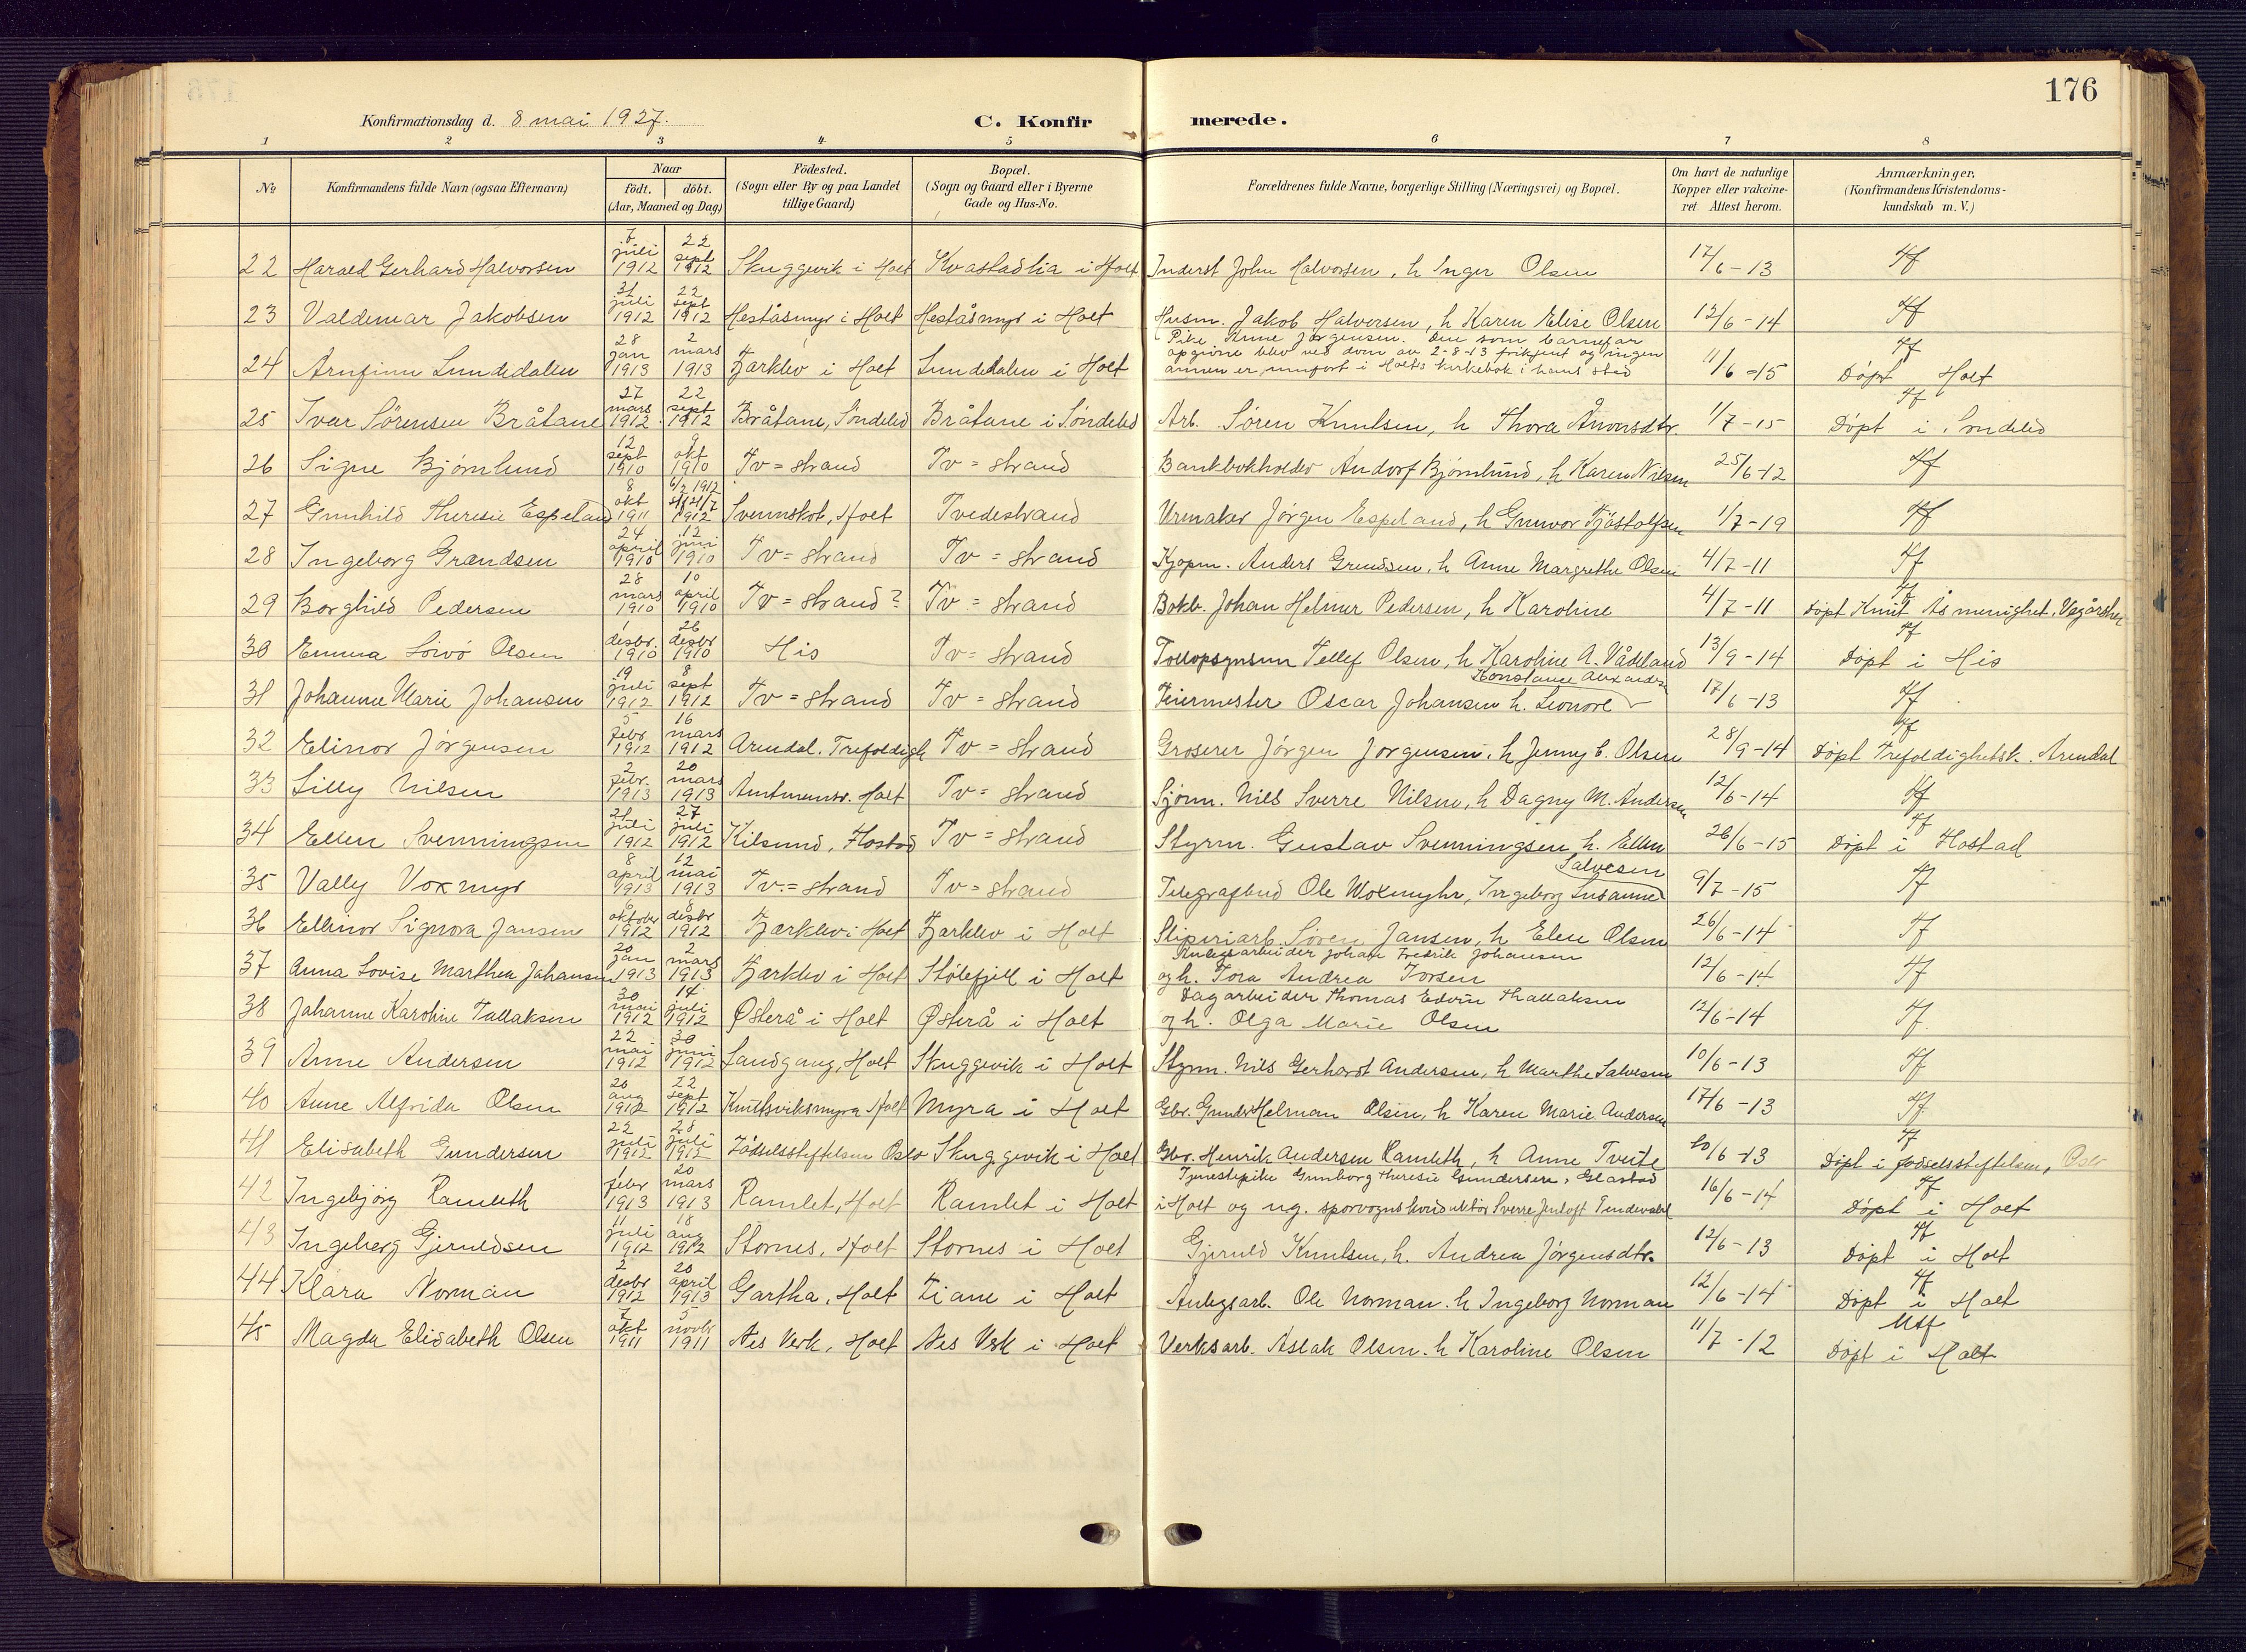 176
Konfirmationsdag d. 8 mai 1927.
C. Konfirmerede.
1 2 3 4 5 6 7 8
№ Konfirmandens fulde Navn (ogsaa Efternavn) Naar födt. döbt. (Aar, Maaned og Dag) Födested. (Sogn eller By og paa Landet tillige Gaard) Bopæl. (Sogn og Gaard eller i Byerne Gade og Hus-No. Forældrenes fulde Navne, borgerlige Stilling (Næringsvei) og Bopæl. Om havt de naturlige Kopper eller vakcineret. Attest herom. Anmærkninger. (Konfirmandens Kristendomskundskab m. V.)
22 Harald Gerhard Halvorsen 7 juli 1912 22 sept 1912 Skuggevik i Holt Kvastadlia i Holt Inderst John Halvorsen, h Inger Olsen 17/6-13 Tf
23 Valdemar Jakobsen 31 juli 1912 22 sept 1912 Heståsmyr i Holt Heståsmyr i Holt Husm. Jakob Halvorsen, h Karen Elise Olsen 12/6-14 Tf
24 Arnfinn Lundedalen 28 jan 1913 2 mars 1913 Fjærklev i Holt Lundedalen i Holt Pike Anne Jørgensen. Den som barnefar opgivne blev ved dom av 2-8-13 frikjent og ingen annen er innført i Holts kirkebok i hans sted 11/6-15 Tf Døpt Holt
25 Ivar Sørensen Bråtane 27 mars 1912 22 sept 1912 Bråtane, Søndeled Bråtane i Søndeled Arb. Søren Knutsen, h Thora Ånonsdtr. 1/7-15 Tf Døpt i Søndeled
26 Signe Bjørnlund 12 sept 1910 9 okt 1910 Tv=strand Tv=strand Bankbokholder Andorf Bjørnlund, h Karen Nilsen 25/6-12 Tf
27 Gunhild Theresie Espeland 8 okt 1911 6/2 1912 21/7 1912 Svennskot, Holt Tvedestrand Urmaker Jørgen Espeland, h Gunvor Tjøstolfsen 1/7-19 Tf
28 Ingeborg Grændsen 24 april 1910 12 juni 1910 Tv=strand Tv=strand Kjøpm. Anders Grendsen, h Anne Margrethe Olsen 4/7-11 Tf
29 Borghild Pedersen 28 mars 1910 10 april 1910 Tv=strand? Tv=strand Bokb. Johan Helmer Pedersen, h Karoline 4/7-11 Tf Døpt Knut Ås menighet, Vegårshei
30 Emma Lovø Olsen 1 desbr. 1910 26 desbr 1910 His Tv=strand Tollopsynsm Tellef Olsen, h Karoline A. Vådeland 13/9-14 Tf Døpt i His
31 Johanne Marie Johansen 19 juli 1912 8 sept 1912 Tv=strand Tv=strand Feiermester Oscar Johansen h. Leonore Konstance Alexander 17/6-13 Tf
32 Elinor Jørgensen 5 febr 1912 16 mars 1912 Arendal. Trefoldigh Tv=strand Groserer Jörgen Jorgensen, h Jenny C. Olsen 28/9-14 Tf Døpt Trefoldighetsk. Arendal
33 Lilly Nilsen 2 febr. 1913 20 mars 1913 Amtmannsv. Holt Tv=strand Sjöm. Nils Sverre Nilsen, h Dagny M. Andersen 12/6-14 Tf
34 Ellen Svenningsen 21 juli 1912 27 juli 1912 Kilsund, Flostad Tv=strand Styrm. Gustav Svenningsen h. Ellen Salvesen 26/6-15 Tf Døpt i Flostad
35 Vally Voxmyr 8 april 1913 12 mai 1913 Tv.=strand Tv=strand Telegrafbud Ole Woxmyhr, Ingeborg Susanne 9/7-15 Tf
36 Ellinor Signora Jansen 6 oktober 1912 8 desbr 1912 Fjærklev i Holt Fjærklev i Holt Sliperiarb. Søren Jansen, h Elen Olsen 26/6-14 Tf
37 Anna Lovise Marthea Johansen 20 jan 1913 2 mars 1913 Fjærklev i Holt Stølefjell i Holt Anlegsarbeider Johan Fredrik Johansen og h. Tora Andrea Torsen 12/6-14 Tf
38 Johanne Karoline Tallaksen 30 mai 1912 14 juli 1912 Østerå i Holt Østerå i Holt Dagarbeider Thomas Edvin Thallaksen og h. Olga Marie Olsen 12/6-14 Tf.
39 Anne Andersen 22 mai 1912 30 juni 1912 Landgang, Holt Skuggevik i Holt Styrm. Nils Gerhardt Andersen, h Marthe Salvesen 10/6-13 Tf
40 Anne Alfrida Olsen 20 aug 1912 22 sept 1912 Knutsviksmyra Holt Myra i Holt Gbr. Gunder Helman Olsen, h Karen Marie Andersen 17/6-13 Tf
41 Elisabeth Gundersen 22 juli 1912 28 juli 1912 Fødselsstiftelsen Oslo Skuggevik i Holt Gbr. Henrik Andersen Ramleth, h Anne Tveite 10/6-13 Tf Døpt i fødselsstiftelsen, Oslo
42 Ingebjørg Ramleth 1 febr 1913 20 mars 1913 Ramlet, Holt Ramlet i Holt Tjenestepike Gunborg Theresie Gundersen, Glastad i Holt og ug. sporvognskonduktør Sverre Jenloft Tendevahl 16/6-14 Tf Døpt i Holt
43 Ingeberg Gjeruldsen 11 juli 1912 18 aug 1912 Stornes, Holt Stornes i Holt Gjeruld Knutsen, h. Andrea Jørgensdtr. 12/6-13 Tf Døpt i Holt
44 Klara Norman 2 desbr 1912 20 april 1913 Gartha, Holt Liane i Holt Anlegsarb. Ole Norman. h Ingeborg Norman 12/6-14 Tf Døpt i Holt
45 Magda Elisabeth Olsen 7 okt 1911 5 novbr 1911 Nes Verk, Holt Nes Verk i Holt Verksarb. Aslak Olsen. h Karoline Olsen 11/7-12 Mtf Døpt i Holt